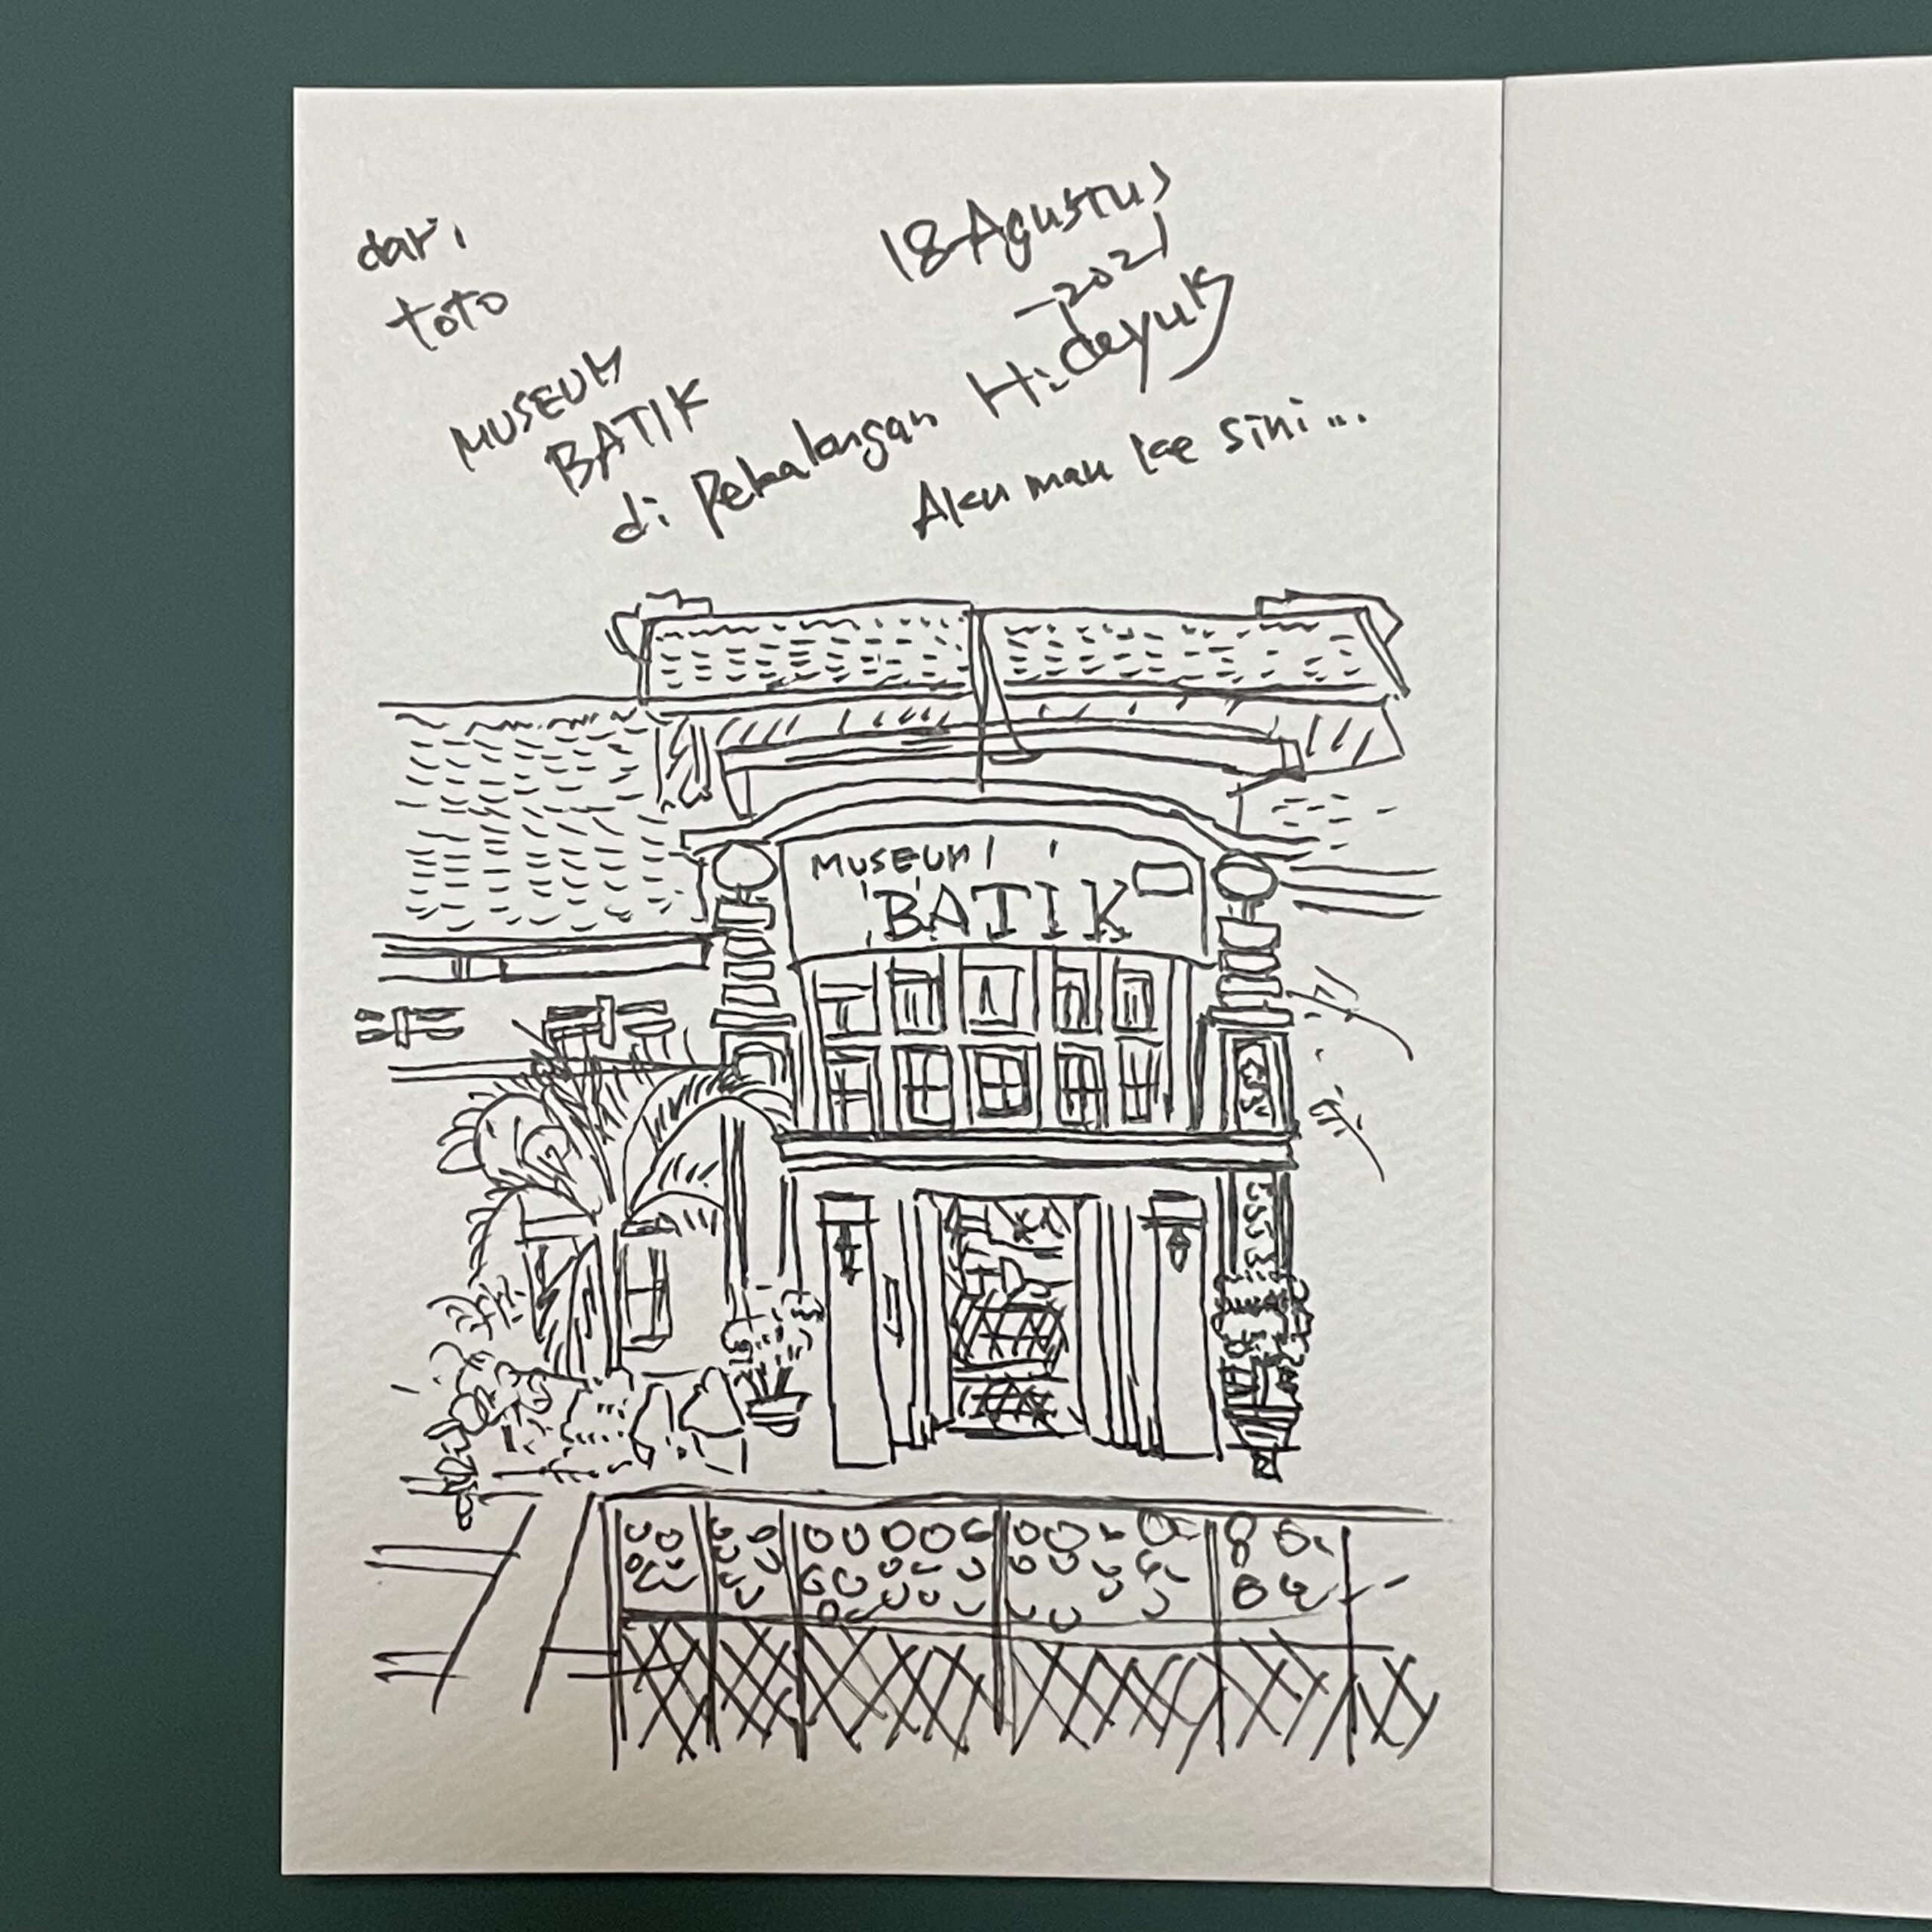 dari
toto
MUSEUM
BATIK
di Pekalongan
18 Agustus
2021
Hideyuki
Aku mau ke sini...
MUSEUM
BATIK